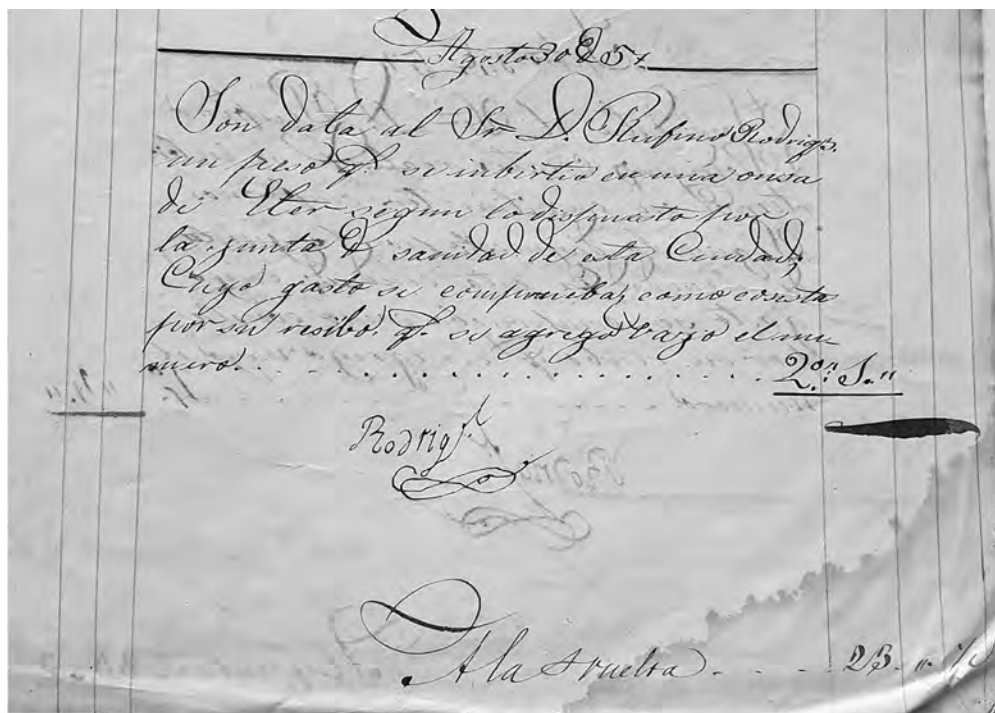 Agosto 30 de 57
Son data al Sr. D. Rufino Rodrigz.
un peso qe. se inbirtio en una onsa
de Eter segun lo dispuesto por
la junta de sanidad de esta Ciudad,
Cuyo gasto se comprueba, como costa
por su resibo. qe. se agrega vajo el nu-
mero. . . . . . . . . . . . . . . . . . 2o"
Rodrigz.
A la vuelta . . . 23 "